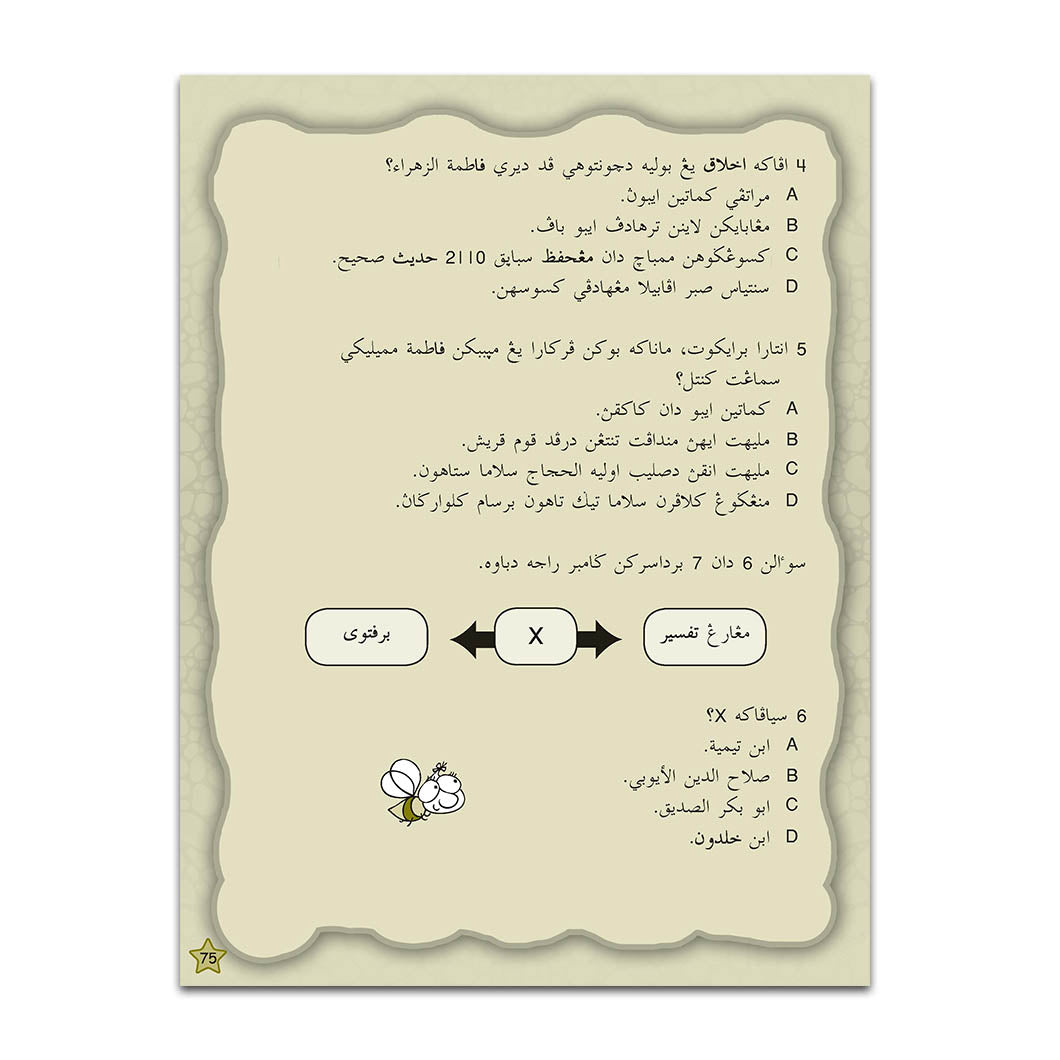 4 اڤاكه اخلاق يڠ بوليه دچونتوهي ڤد ديري فاطمة الزهراء؟
A مراتڤي كماتين ايبوڽ.
B مڠابايكن لاينن ترهادڤ ايبو باڤ.
C كسوڠݢوهن ممباچ دان مڠحفظ سباڽق 2110 حديث صحيح.
D سنتياس صبر اڤابيلا مڠهادڤي كسوسهن.
5 انتارا برايكوت، ماناكه بوكن ڤركارا يڠ مڽببكن فاطمة ميميليكي
سماڠت كنتل؟
A كماتين ايبو دان كاكقڽ.
B مليهت ايهڽ منداڤت تنتڠن درڤد قوم قريش.
C مليهت انقڽ دصليب اوليه الحجاج سلاما ستاهون.
D منڠݢوڠ كلاڤرن سلاما تيݢ تاهون برسام كلوارݢاڽ.
سوءالن 6 دان 7 برداسركن ݢامبر راجه دباوه.
مڠارڠ تفسير
X
برفتوى
6 سياڤاكه X؟
A ابن تيمية.
B صلاح الدين الأيوبي.
C ابو بكر الصديق.
D ابن خلدون.
75